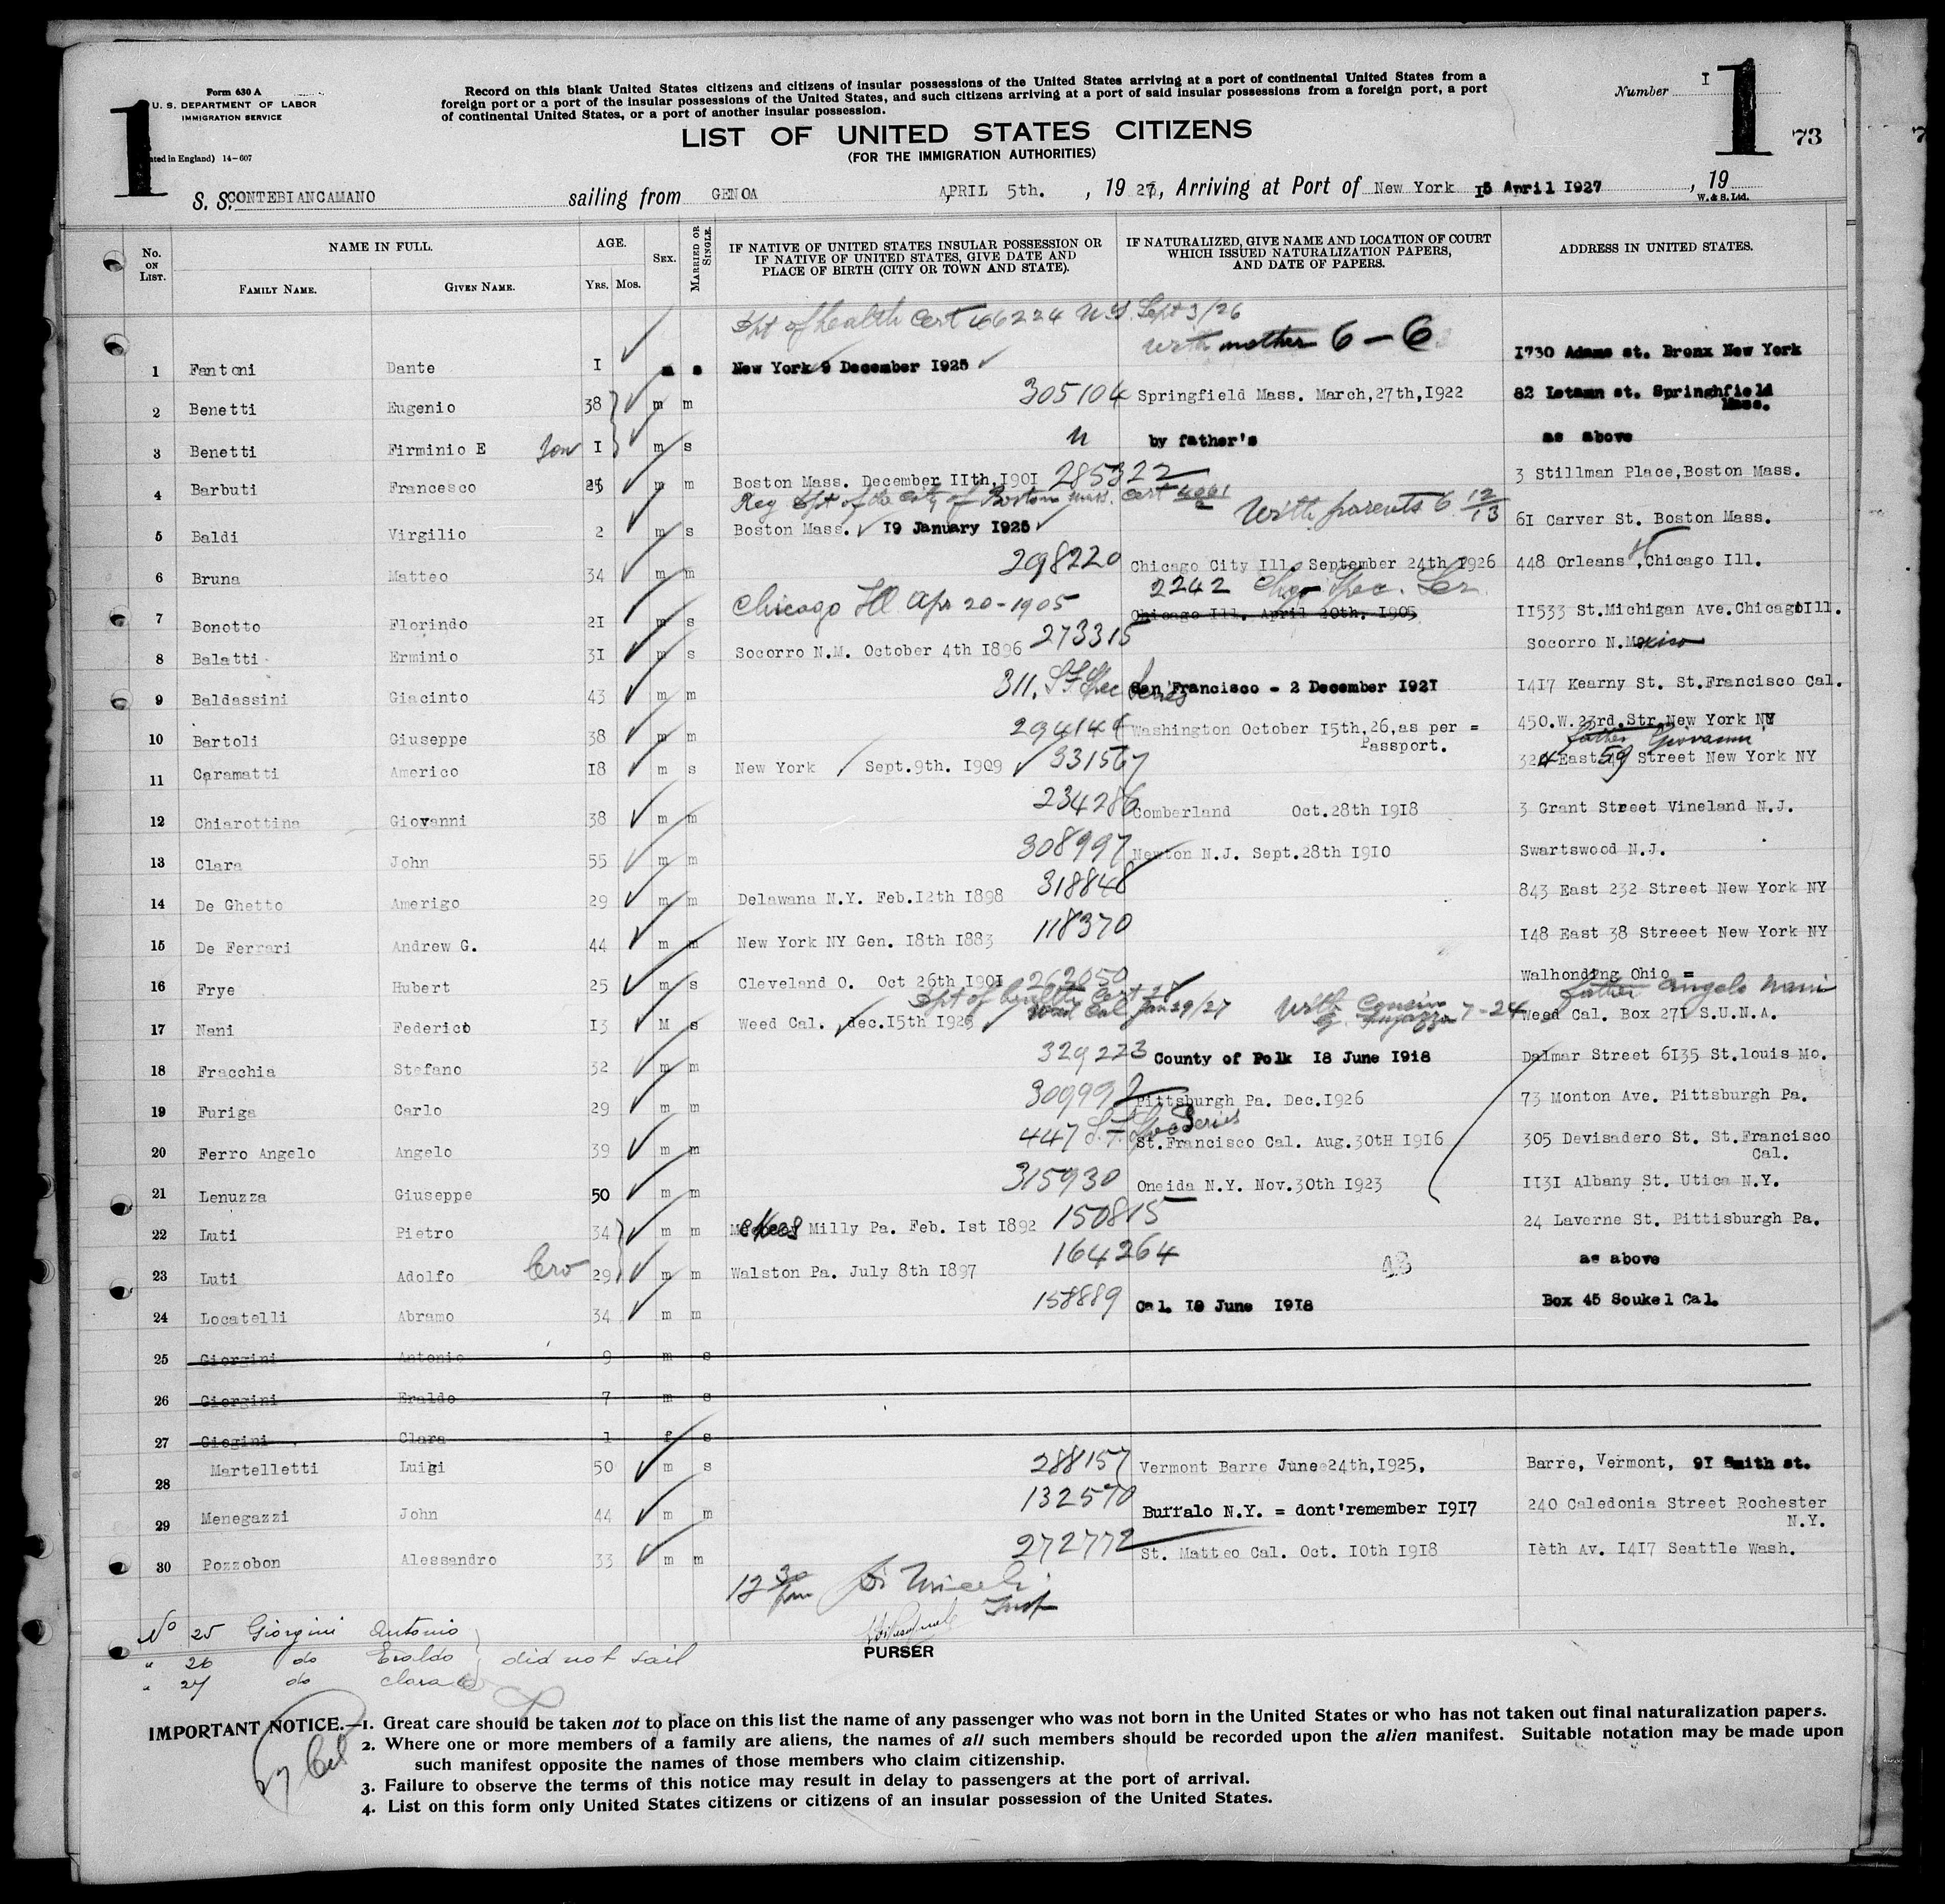 Form 630 A
U. S. DEPARTMENT OF LABOR
IMMIGRATION SERVICE
(Printed in England) 14-607
1
Record on this blank United States citizens and citizens of insular possessions of the United States arriving at a port of continental United States from a
foreign port or a port of the insular possessions of the United States, and such citizens arriving at a port of said insular possessions from a foreign port, a port
of continental United States, or a port of another insular possession.
LIST OF UNITED STATES CITIZENS
(FOR THE IMMIGRATION AUTHORITIES)
Number I
1
73
S. S. CONTEBIANCAMANO sailing from GENOA APRIL 5th. , 19 27, Arriving at Port of New York 15 April 1927 , 19
W. & S. Ltd.
No. ON LIST. NAME IN FULL. FAMILY NAME. GIVEN NAME. AGE. Yrs. Mos. SEX. MARRIED OR SINGLE. IF NATIVE OF UNITED STATES INSULAR POSSESSION OR IF NATIVE OF UNITED STATES, GIVE DATE AND PLACE OF BIRTH (CITY OR TOWN AND STATE). IF NATURALIZED, GIVE NAME AND LOCATION OF COURT WHICH ISSUED NATURALIZATION PAPERS, AND DATE OF PAPERS. ADDRESS IN UNITED STATES.
Dpt of health Cert 46224 N.Y. Sept 3/26
with mother 6-6
1 Fantoni Dante I m s New York 9 December 1925 1730 Adams st. Bronx New York
2 Benetti Eugenio 38 m m 305104 Springfield Mass. March,27th,1922 82 Letamn st. Springhfield Mass.
3 Benetti Firminio E son I m s " by father's as above
4 Barbuti Francesco 25 m m Boston Mass. December IIth,I90I 285322 3 Stillman Place,Boston Mass.
Reg Dpt of the City of Boston Mass. Cert With parents 6 12/13
5 Baldi Virgilio 2 m s Boston Mass. 19 January 1925 6I Carver St. Boston Mass.
6 Bruna Matteo 34 m m 298220 Chicago City Ill. September 24th 1926 448 Orleans St,Chicago Ill.
2242 Chgo Spec. Ser.
7 Bonotto Florindo 2I m s Chicago Ill Apr 20-1905 Chicago Ill. April 20th. I905 II533 St.Michigan Ave.Chicago Ill.
8 Balatti Erminio 3I m s Socorro N.M. October 4th I896 273315 Socorro N.Mexico
9 Baldassini Giacinto 43 m m 311. S.F. Spec Series San Francisco - 2 December 192I I4I7 Kearny St. St.Francisco Cal.
10 Bartoli Giuseppe 38 m m Washington October I5th,26,as per = Passport. 450.W.23rd.Str.New York NY
father Giovanni
11 Caramatti Americo I8 m s New York Sept.9th. I909 331567 324 East 59 Street New York NY
12 Chiarottina Giovanni 38 m m 234286 Comberland Oct.28th I9I8 3 Grant Street Vineland N.J.
13 Clara John 55 m m 308997 Newton N.J. Sept.28th I9I0 Swartswood N.J.
14 De Ghetto Amerigo 29 m m Delawana N.Y. Feb.I2th I898 318848 843 East 232 Street New York NY
15 De Ferrari Andrew G. 44 m m New York NY Gen. I8th I883 118370 I48 East 38 Streeet New York NY
16 Frye Hubert 25 m s Cleveland O. Oct 26th I90I 262050 Walhonding Ohio =
Dpt of health Cert 28 Weed Cal Jan 29/27 With Cousin 7-24 father Angelo Nani
17 Nani Federico I3 M s Weed Cal. dec.I5th I925 Weed Cal. Box 27I S.U.N.A.
18 Fracchia Stefano 32 m m 329223 County of Polk I8 June I9I8 Dalmar Street 6I35 St.louis Mo.
19 Furiga Carlo 29 m m 309992 Pittsburgh Pa. Dec.I926 73 Monton Ave. Pittsburgh Pa.
20 Ferro Angelo Angelo 39 m m 447 S.F. Spec Series St.Francisco Cal. Aug.30tH I9I6 305 Devisadero St. St.Francisco Cal.
21 Lenuzza Giuseppe 50 m m 315930 Oneida N.Y. Nov.30th I923 II3I Albany St. Utica N.Y.
22 Luti Pietro 34 m m Milly Pa. Feb. Ist I892 150815 24 Laverne St. Pittisburgh Pa.
23 Luti Adolfo bro 29 m m Walston Pa. July 8th I897 164264 as above
24 Locatelli Abramo 34 m m 158889 Cal. I9 June I9I8 Box 45 Soukel Cal.
25 Giorgini Antonio 9 m s
26 Giorgini Eraldo 7 m s
27 Giogini Clara 1 f s
28 Martelletti Luigi 50 m s 288157 Vermont Barre June 24th,I925, Barre, Vermont, 9I Smith st.
29 Menegazzi John 44 m m 132570 Buffalo N.Y. = dont'remember I9I7 240 Caledonia Street Rochester N.Y.
30 Pozzobon Alessandro 33 m m 272772 St. Matteo Cal. Oct. I0th I9I8 Ièth Av. I4I7 Seattle Wash.
12 30 pm Insp
PURSER
No 25 Giorgini Antonio
" 26 do Eraldo did not sail
" 27 do Clara
27 Cit
IMPORTANT NOTICE.—1. Great care should be taken not to place on this list the name of any passenger who was not born in the United States or who has not taken out final naturalization papers.
2. Where one or more members of a family are aliens, the names of all such members should be recorded upon the alien manifest. Suitable notation may be made upon
such manifest opposite the names of those members who claim citizenship.
3. Failure to observe the terms of this notice may result in delay to passengers at the port of arrival.
4. List on this form only United States citizens or citizens of an insular possession of the United States.